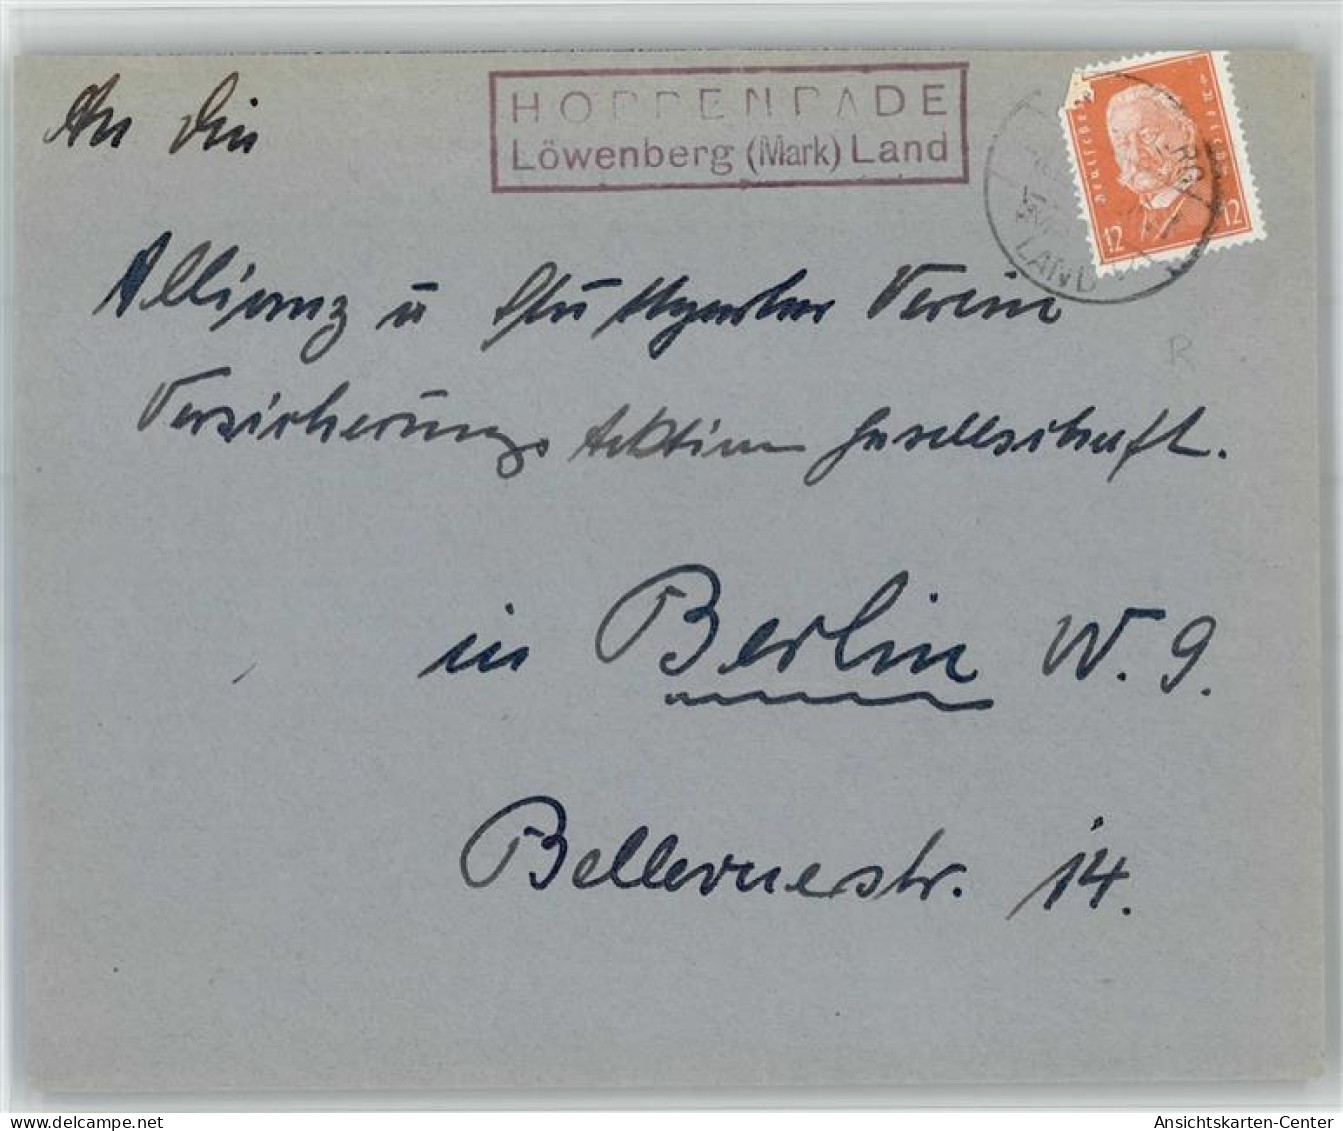 An die
HOPPENRADE
Löwenberg (Mark) Land
Deutsches Reich
12 12
LAND
Allianz u Stuttgarter Verein
Versicherungs Aktien Gesellschaft.
R
in Berlin W. 9.
Bellevuestr. 14.
delcampe.net
Ansichtskarten-Center